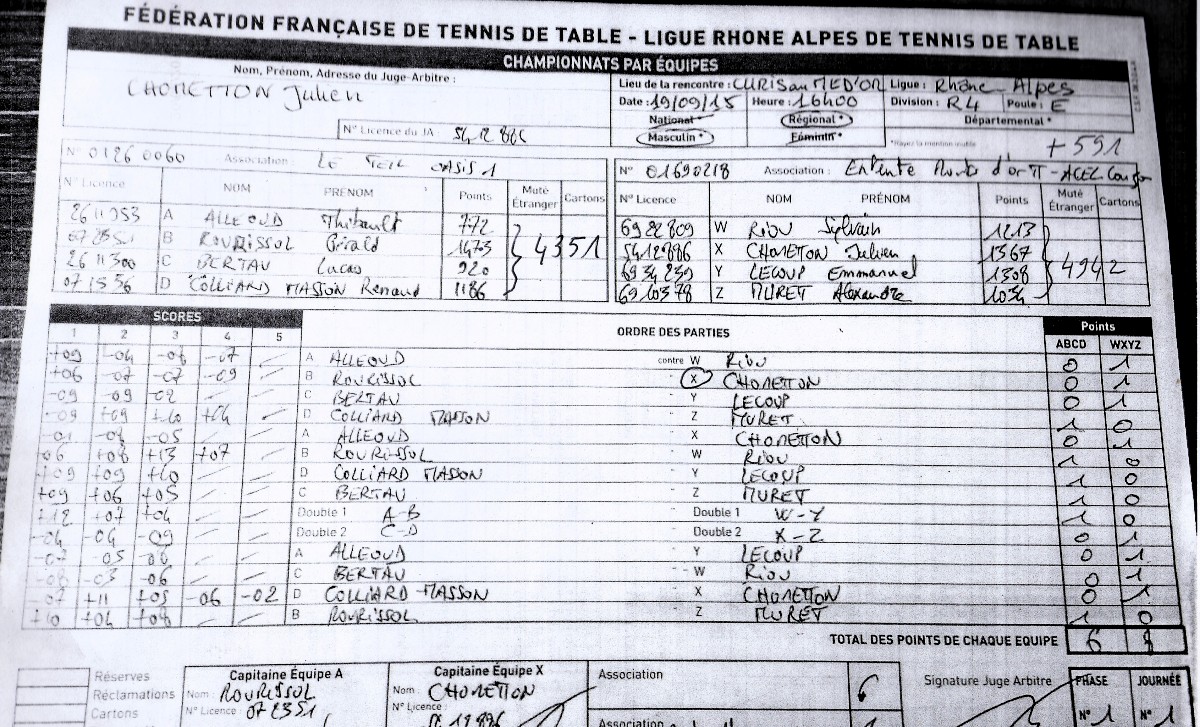 FÉDÉRATION FRANÇAISE DE TENNIS DE TABLE - LIGUE RHONE ALPES DE TENNIS DE TABLE
CHAMPIONNATS PAR ÉQUIPES
Nom, Prénom, Adresse du Juge-Arbitre :
CHOMETTON Julien
N° Licence du JA :
Lieu de la rencontre : CURIS au MT D'OR Ligue : Rhône Alpes
Date : 19/09/15 Heure : 16h00 Division : R4 Poule : E
National Régional * Départemental *
Masculin * Féminin *
*Rayez la mention inutile
+591
N° 01260060 Association : LE TEIL OASIS 1
N° 01690218 Association : Entente Mont d'or TT -
N° Licence NOM PRÉNOM Points Muté Étranger Cartons
N° Licence NOM PRÉNOM Points Muté Étranger Cartons
A ALLEOUD Thibault 772
B ROURISSOL 1473
26 11300 C BERTAU Lucas 920
D COLLIARD MASSON Renaud 1186
4351
69 22809 W RIOU Sylvain 1213
X CHOMETTON Julien 1367
69 34 239 Y LECOUP Emmanuel 1308
69 10378 Z MURET Alexandre 1034
4942
SCORES ORDRE DES PARTIES Points
1 2 3 4 5 ABCD WXYZ
+09 -04 -07 A ALLEOUD contre W RIOU 0 1
+06 -07 -07 -09 B ROURISSOL X CHOMETTON 0 1
-09 -09 -02 C BERTAU Y LECOUP 0 1
-09 +09 +10 +04 D COLLIARD MASSON Z MURET 1 0
-01 -05 A ALLEOUD X CHOMETTON 0 1
+08 +13 +07 B ROURISSOL W RIOU 1 0
+09 +09 +10 D COLLIARD MASSON Y LECOUP 1 0
+09 +06 +05 C BERTAU Z MURET 1 0
+12 +07 +04 Double 1 A-B Double 1 W-Y 1 0
-04 -04 -09 Double 2 C-D Double 2 X-Z 0 1
-05 A ALLEOUD Y LECOUP 0 1
-03 -06 C BERTAU W RIOU 0 1
+11 -06 -02 D COLLIARD MASSON X CHOMETTON 0 1
+10 +04 +08 B ROURISSOL Z MURET 1 0
TOTAL DES POINTS DE CHAQUE EQUIPE 6 8
Réserves
Réclamations
Cartons
Capitaine Équipe A
Nom : ROURISSOL
N° Licence : 07 2351
Capitaine Équipe X
Nom : CHOMETTON
N° Licence :
Association 6
Association
Signature Juge Arbitre
PHASE JOURNÉE
N° 1 N° 1